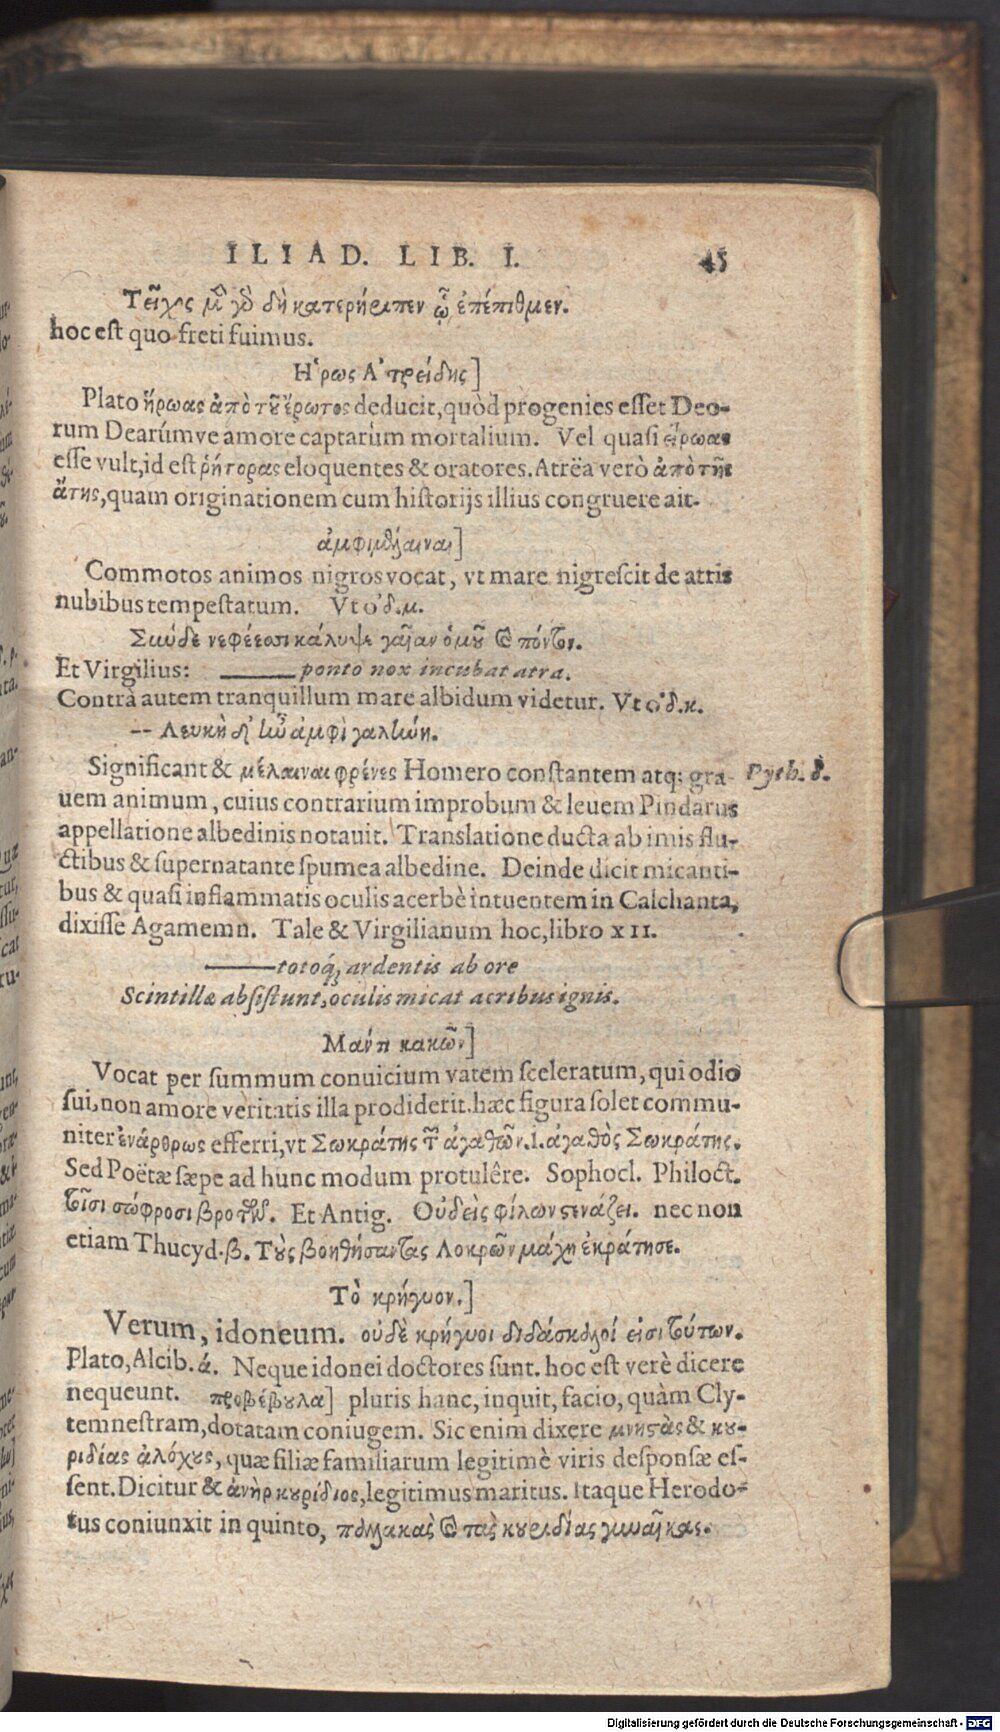 ILIAD. LIB. I. 45
Τεῖχος μὲν γὸ δὴ κατερήριπεν ᾧ ἐπέπιθμεν.
hoc est quo freti fuimus.
Ηʽρως Αʼτρείδης]
Plato ἥρωας ἀπὸ τοῦ ἔρωτος deducit, quòd progenies esset Deo-
rum Dearúmve amore captarùm mortalium. Vel quasi εἴρωας
esse vult, id est ῥήτορας eloquentes & oratores. Atrëa verò ἀπὸ τῆς
ἄτης, quam originationem cum historijs illius congruere ait.
ἀμφιμέλαιναι]
Commotos animos nigros vocat, vt mare nigrescit de atris
nubibus tempestatum. Vt ὀδ.μ.
Σιωὺ δὲ νεφέεσσι κάλυψε γαῖαν ὁμοῦ καὶ πόντον.
Et Virgilius: ——— ponto nox incubat atra.
Contrà autem tranquillum mare albidum videtur. Vt ὀδ.κ.
-- Λευκὴ δ' ἦν ἀμφὶ γαλήνη.
Significant & μέλαιναι φρένες Homero constantem atq; gra- Pyth. δ.
uem animum, cuius contrarium improbum & leuem Pindarus
appellatione albedinis notauit. Translatione ducta ab imis flu-
ctibus & supernatante spumea albedine. Deinde dicit micanti-
bus & quasi inflammatis oculis acerbè intuentem in Calchanta,
dixisse Agamemn. Tale & Virgilianum hoc, libro XII.
——— totoq́; ardentis ab ore
Scintillæ absistunt, oculis micat acribus ignis.
Μάντι κακῶν.]
Vocat per summum conuicium vatem sceleratum, qui odio
sui, non amore veritatis illa prodiderit. hæc figura solet commu-
niter ἐνάρθρως efferri, vt Σωκράτης τῶν ἀγαθῶν. 1. ἀγαθὸς Σωκράτης.
Sed Poëtæ sæpe ad hunc modum protulêre. Sophocl. Philoct.
τοῖσι σώφροσι βροτῶν. Et Antig. Οὐδεὶς φίλων στενάζει. nec non
etiam Thucyd.β. Τοὺς βοηθήσαντας Λοκρῶν μάχῃ ἐκράτησε.
Τὸ κρήγυον.]
Verum, idoneum. οὐδὲ κρήγυοι διδάσκαλοί εἰσι τούτων.
Plato, Alcib. ά. Neque idonei doctores sunt. hoc est verè dicere
nequeunt. προβέβουλα] pluris hanc, inquit, facio, quàm Cly-
temnestram, dotatam coniugem. Sic enim dixere μνηστὰς & κου-
ριδίας ἀλόχους, quæ filiæ familiarum legitimè viris desponsæ es-
sent. Dicitur & ἀνὴρ κουρίδιος, legitimus maritus. Itaque Herodo-
tus coniunxit in quinto, παλλακὰς καὶ τὰς κουριδίας γυναῖκας.
Digitalisierung gefördert durch die Deutsche Forschungsgemeinschaft - DFG